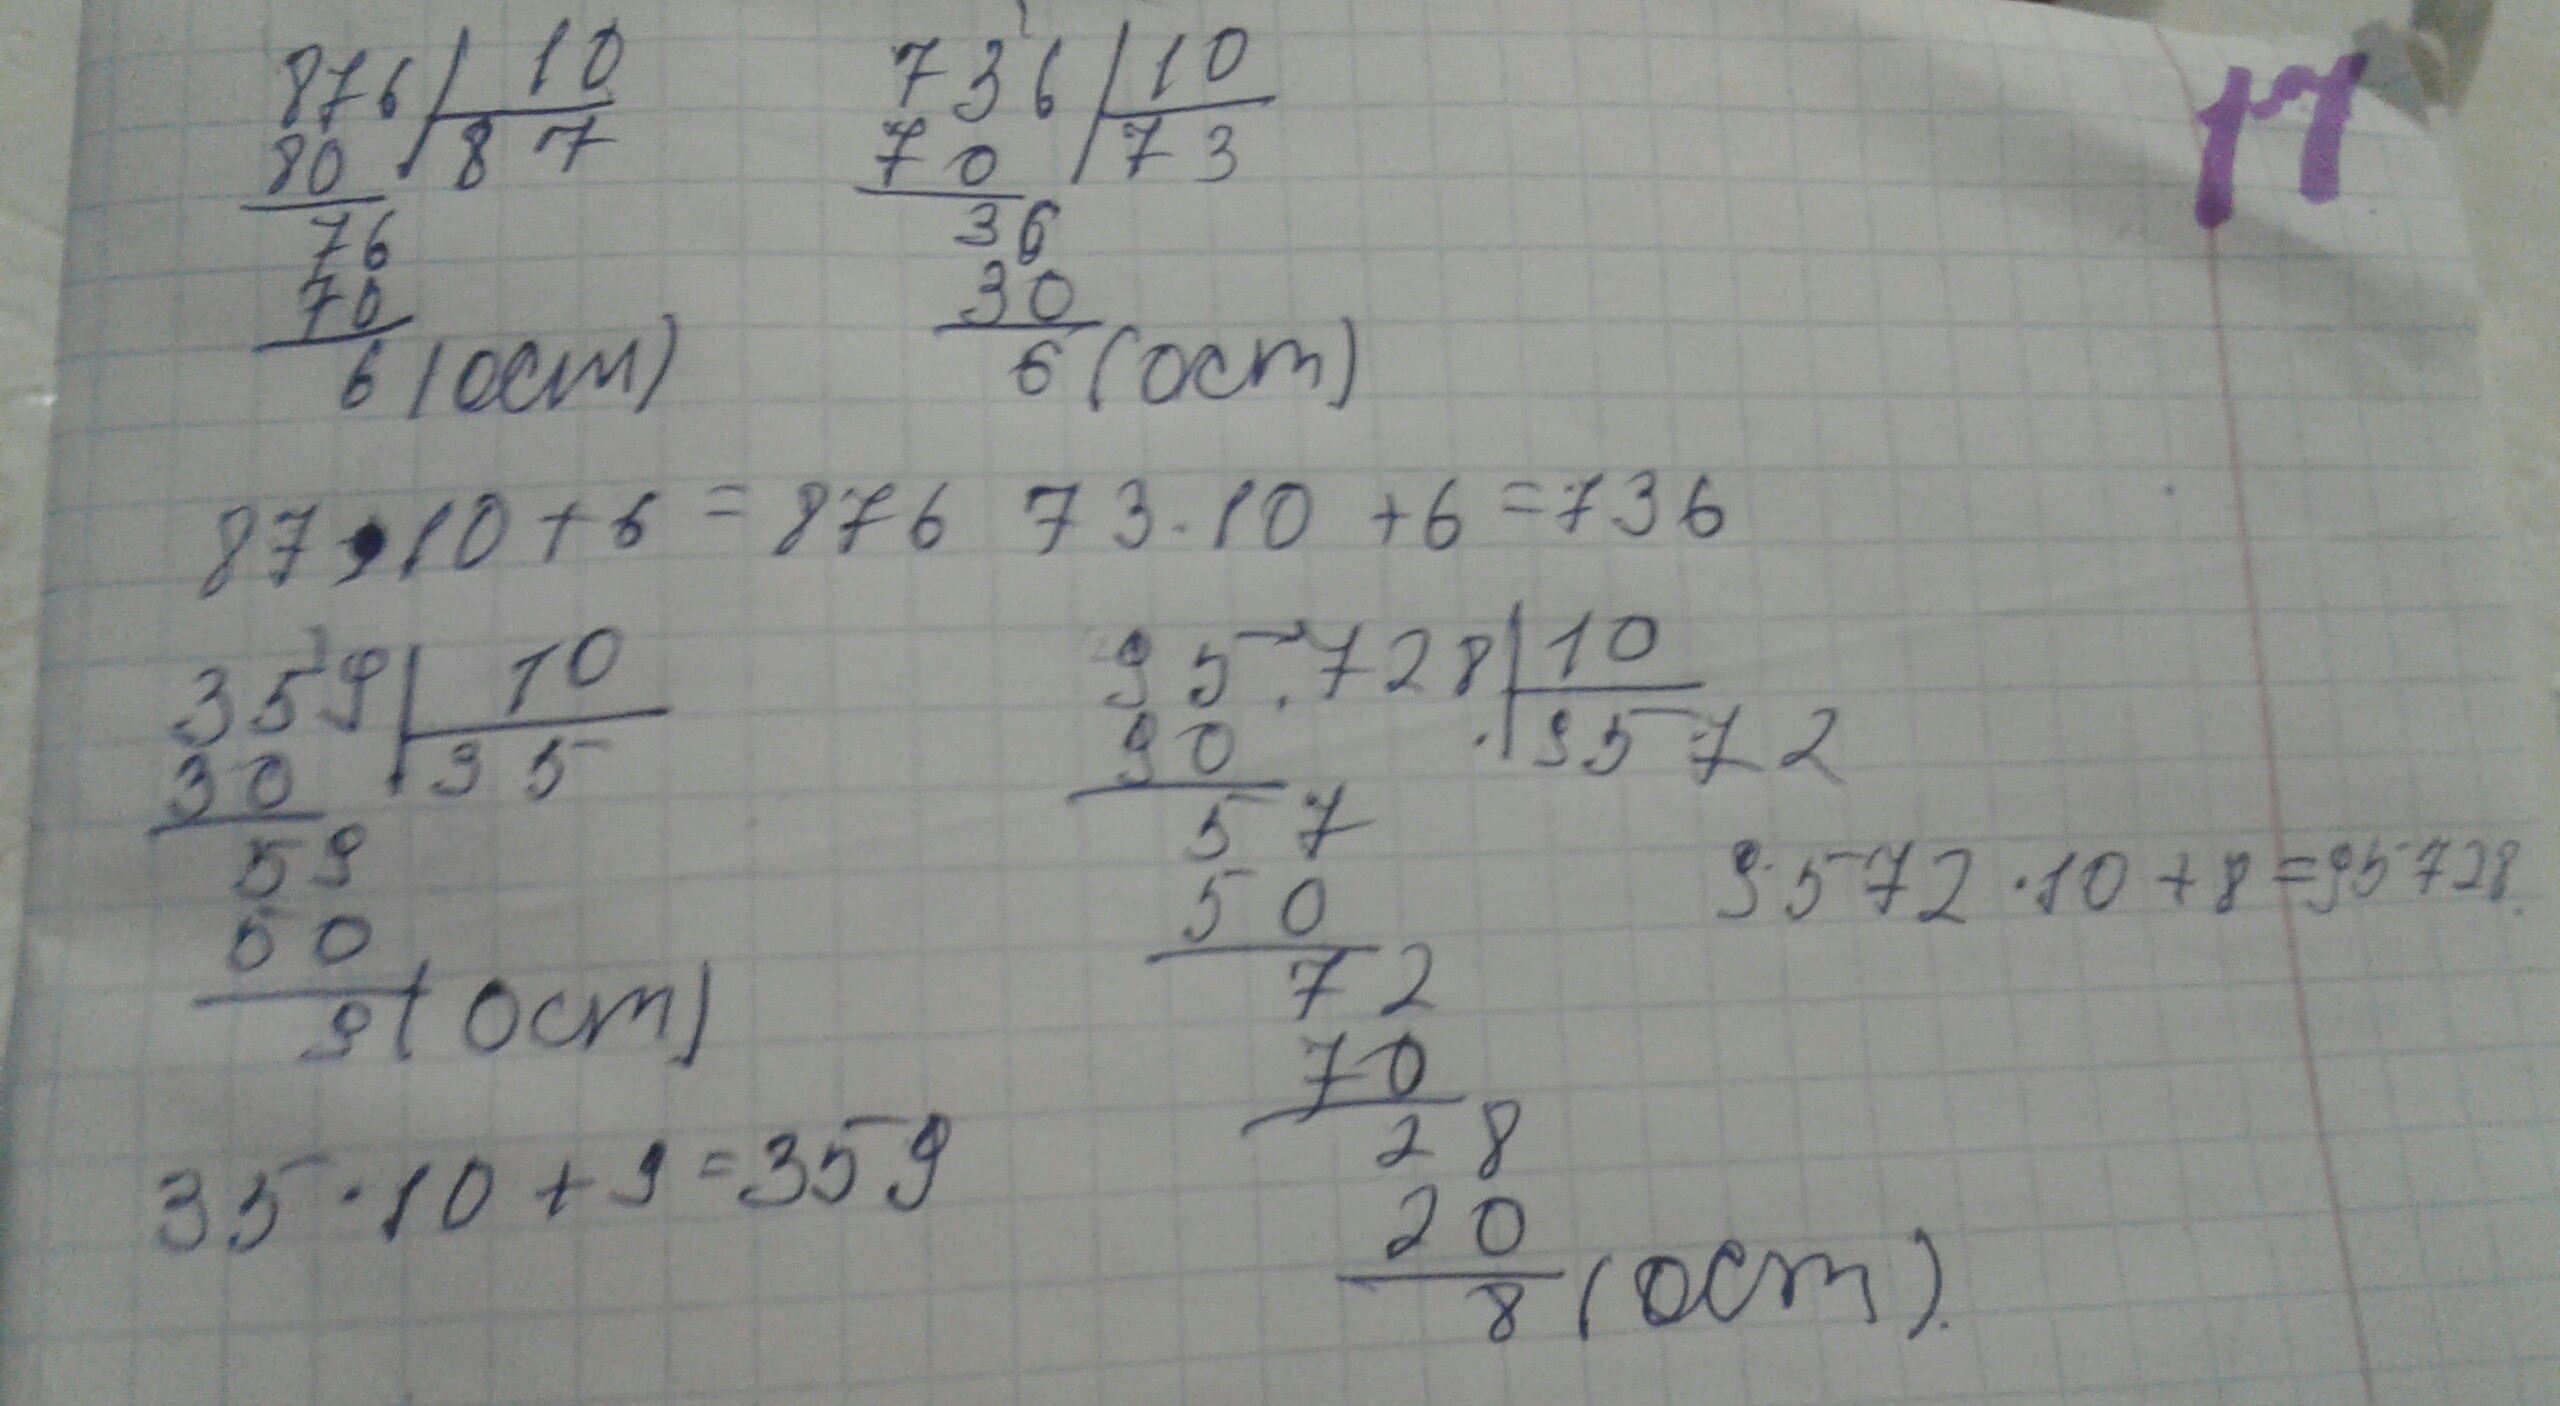 876 | 10   736 | 10   17
80 | 87   70 | 73
76   36
70   30
6 (ост)   6 (ост)
87 · 10 + 6 = 876   73 · 10 + 6 = 736
359 | 10   95728 | 10
30 | 35   90 | 9572
59   57
50   50   9572 · 10 + 8 = 95728.
9 (ост)   72
70
35 · 10 + 9 = 359   28
20
8 (ост).